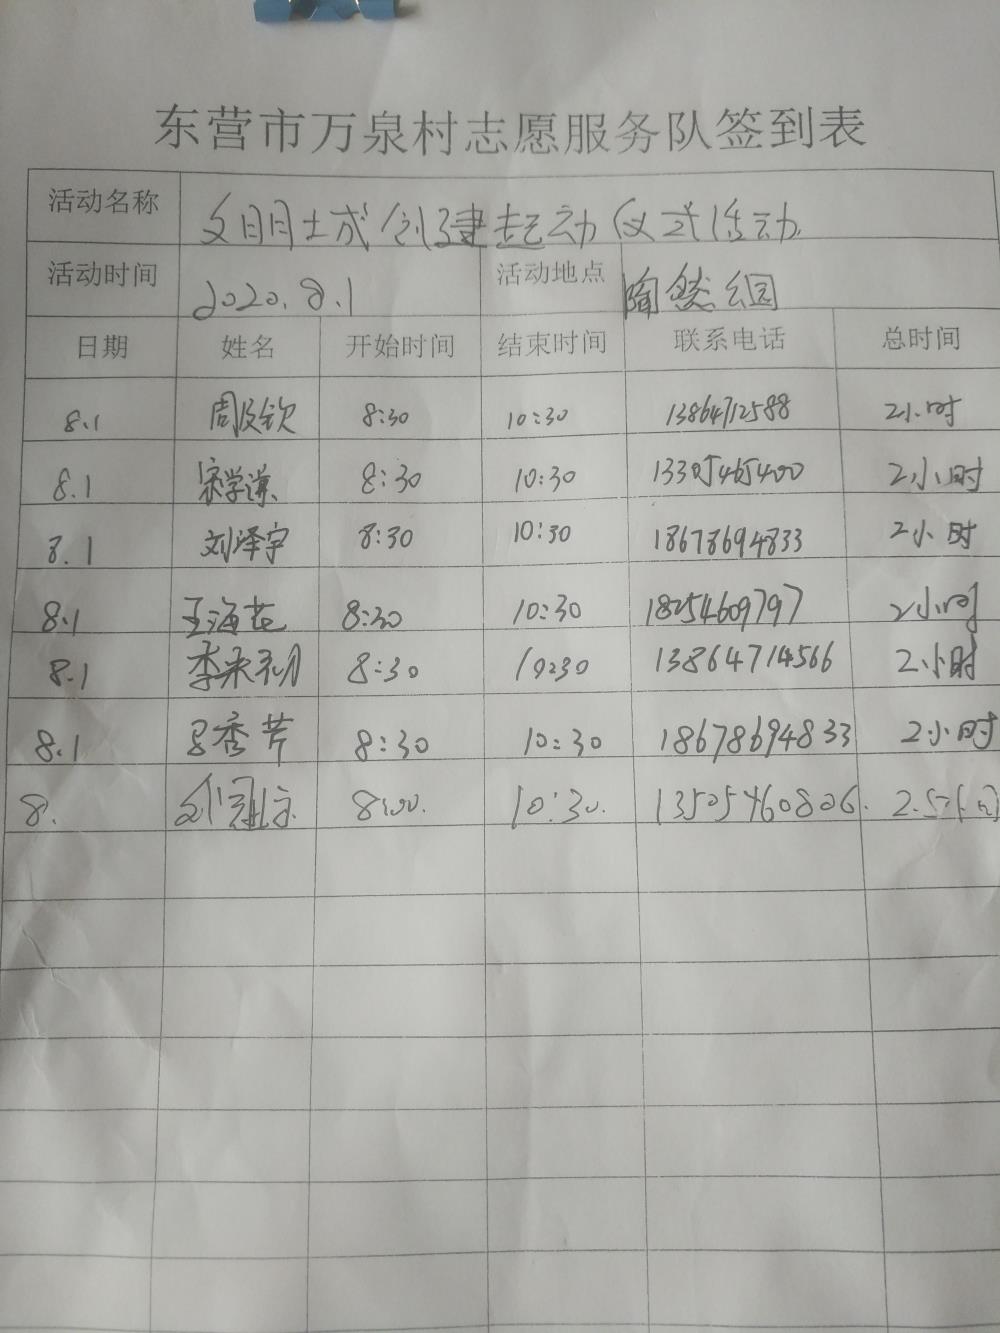 东营市万泉村志愿服务队签到表
活动名称 文明城创建起动仪式活动
活动时间 2020.8.1 活动地点 陶然园
日期 姓名 开始时间 结束时间 联系电话 总时间
8.1 周良钦 8:30 10:30 13864712588 2小时
8.1 宋学谦 8:30 10:30 13305465400 2小时
8.1 刘泽宇 8:30 10:30 18678694833 2小时
8.1 王海花 8:30 10:30 18254609797 2小时
8.1 8:30 10:30 13864714566 2小时
8.1 吕秀芹 8:30 10:30 18678694833 2小时
8. 8:00. 10:30. 13505460806. 2.5